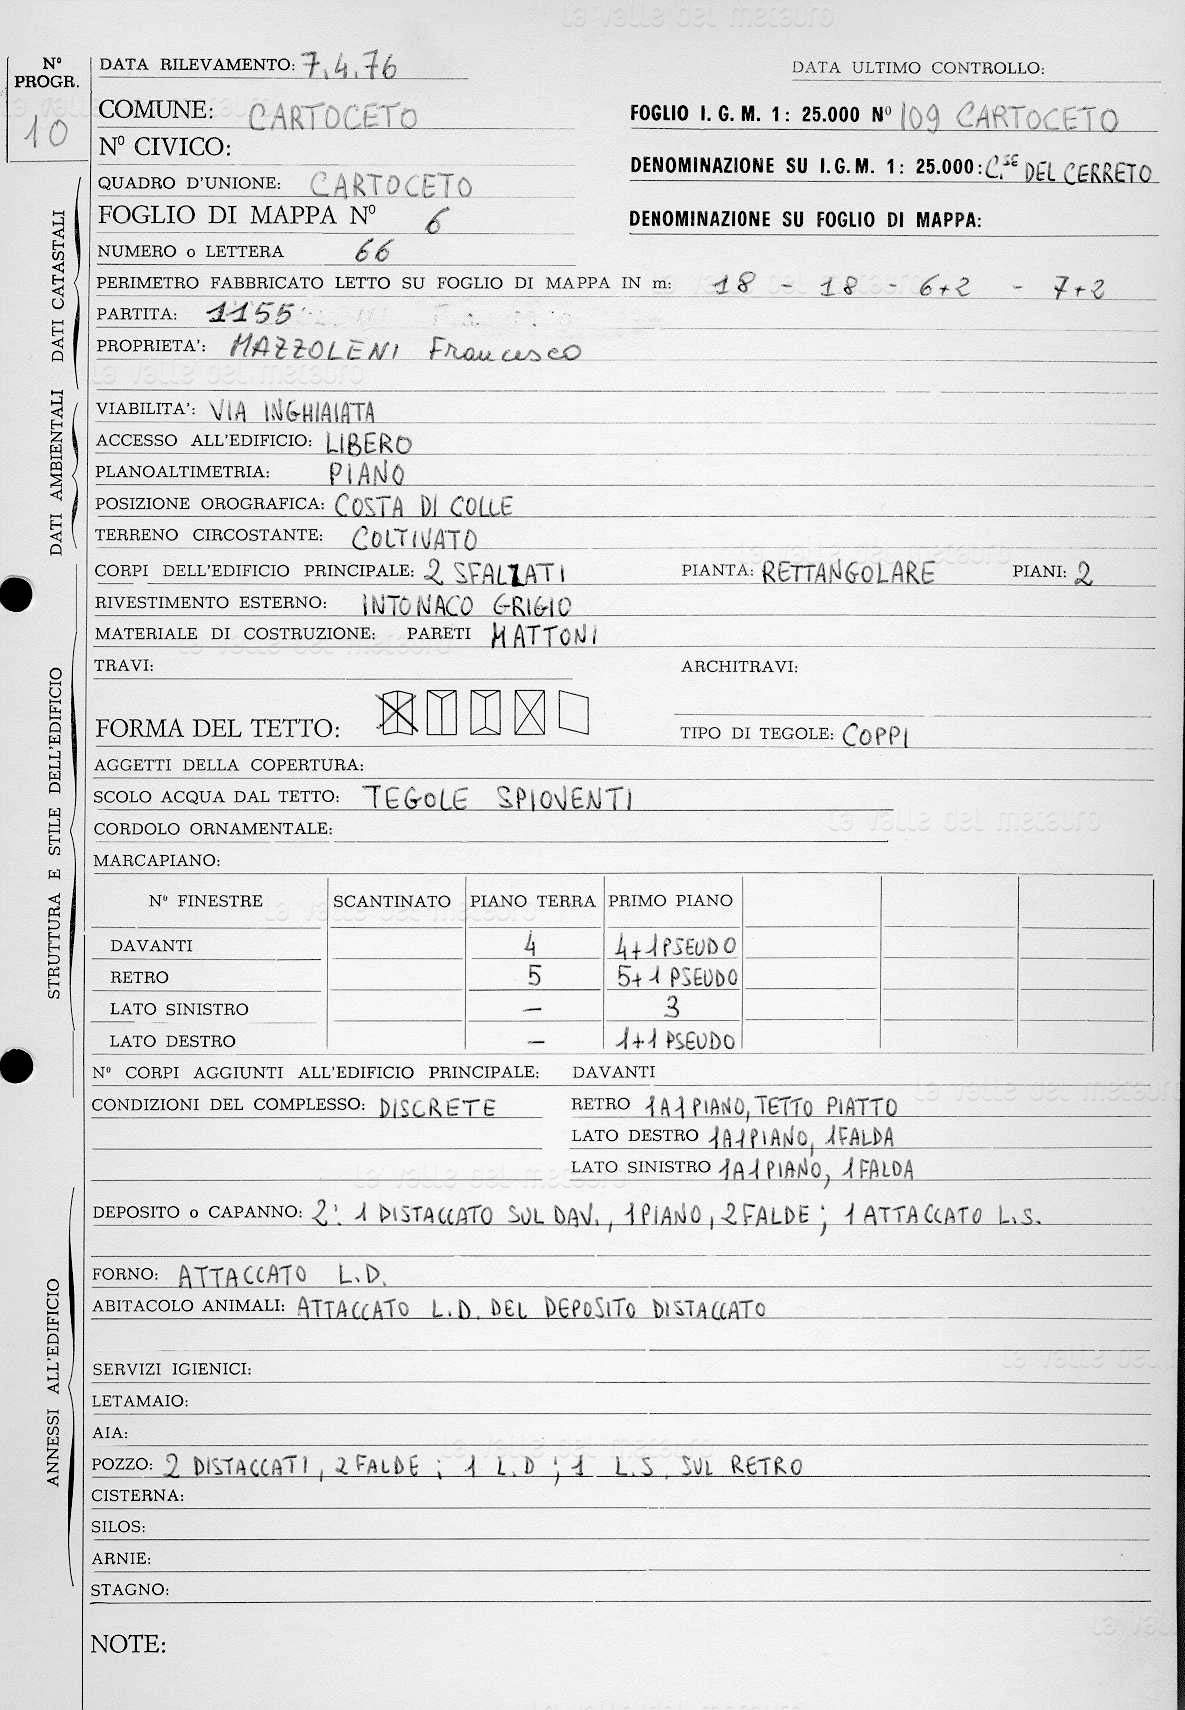 Nº PROGR. 10
DATA RILEVAMENTO: 7.4.76 DATA ULTIMO CONTROLLO:
COMUNE: CARTOCETO FOGLIO I.G.M. 1: 25.000 Nº 109 CARTOCETO
Nº CIVICO: DENOMINAZIONE SU I.G.M. 1: 25.000: C.SE DEL CERRETO
QUADRO D'UNIONE: CARTOCETO
FOGLIO DI MAPPA Nº 6 DENOMINAZIONE SU FOGLIO DI MAPPA:
NUMERO o LETTERA 66
PERIMETRO FABBRICATO LETTO SU FOGLIO DI MAPPA IN m: 18 - 18 - 6+2 - 7+2
PARTITA: 1155
PROPRIETA': MAZZOLENI Francesco
DATI CATASTALI
VIABILITA': VIA INGHIAIATA
ACCESSO ALL'EDIFICIO: LIBERO
PLANOALTIMETRIA: PIANO
POSIZIONE OROGRAFICA: COSTA DI COLLE
TERRENO CIRCOSTANTE: COLTIVATO
DATI AMBIENTALI
CORPI DELL'EDIFICIO PRINCIPALE: 2 SFALZATI PIANTA: RETTANGOLARE PIANI: 2
RIVESTIMENTO ESTERNO: INTONACO GRIGIO
MATERIALE DI COSTRUZIONE: PARETI MATTONI
TRAVI: ARCHITRAVI:
FORMA DEL TETTO: TIPO DI TEGOLE: COPPI
AGGETTI DELLA COPERTURA:
SCOLO ACQUA DAL TETTO: TEGOLE SPIOVENTI
CORDOLO ORNAMENTALE:
MARCAPIANO:
Nº FINESTRE SCANTINATO PIANO TERRA PRIMO PIANO
DAVANTI 4 4+1 PSEUDO
RETRO 5 5+1 PSEUDO
LATO SINISTRO – 3
LATO DESTRO – 1+1 PSEUDO
STRUTTURA E STILE DELL'EDIFICIO
Nº CORPI AGGIUNTI ALL'EDIFICIO PRINCIPALE: DAVANTI
CONDIZIONI DEL COMPLESSO: DISCRETE RETRO 1 A 1 PIANO, TETTO PIATTO
LATO DESTRO 1 A 1 PIANO, 1 FALDA
LATO SINISTRO 1 A 1 PIANO, 1 FALDA
DEPOSITO o CAPANNO: 2: 1 DISTACCATO SUL DAV., 1 PIANO, 2 FALDE; 1 ATTACCATO L.S.
FORNO: ATTACCATO L.D.
ABITACOLO ANIMALI: ATTACCATO L.D. DEL DEPOSITO DISTACCATO
SERVIZI IGIENICI:
LETAMAIO:
AIA:
POZZO: 2 DISTACCATI, 2 FALDE; 1 L.D; 1 L.S. SUL RETRO
CISTERNA:
SILOS:
ARNIE:
STAGNO:
ANNESSI ALL'EDIFICIO
NOTE:
la valle del metauro